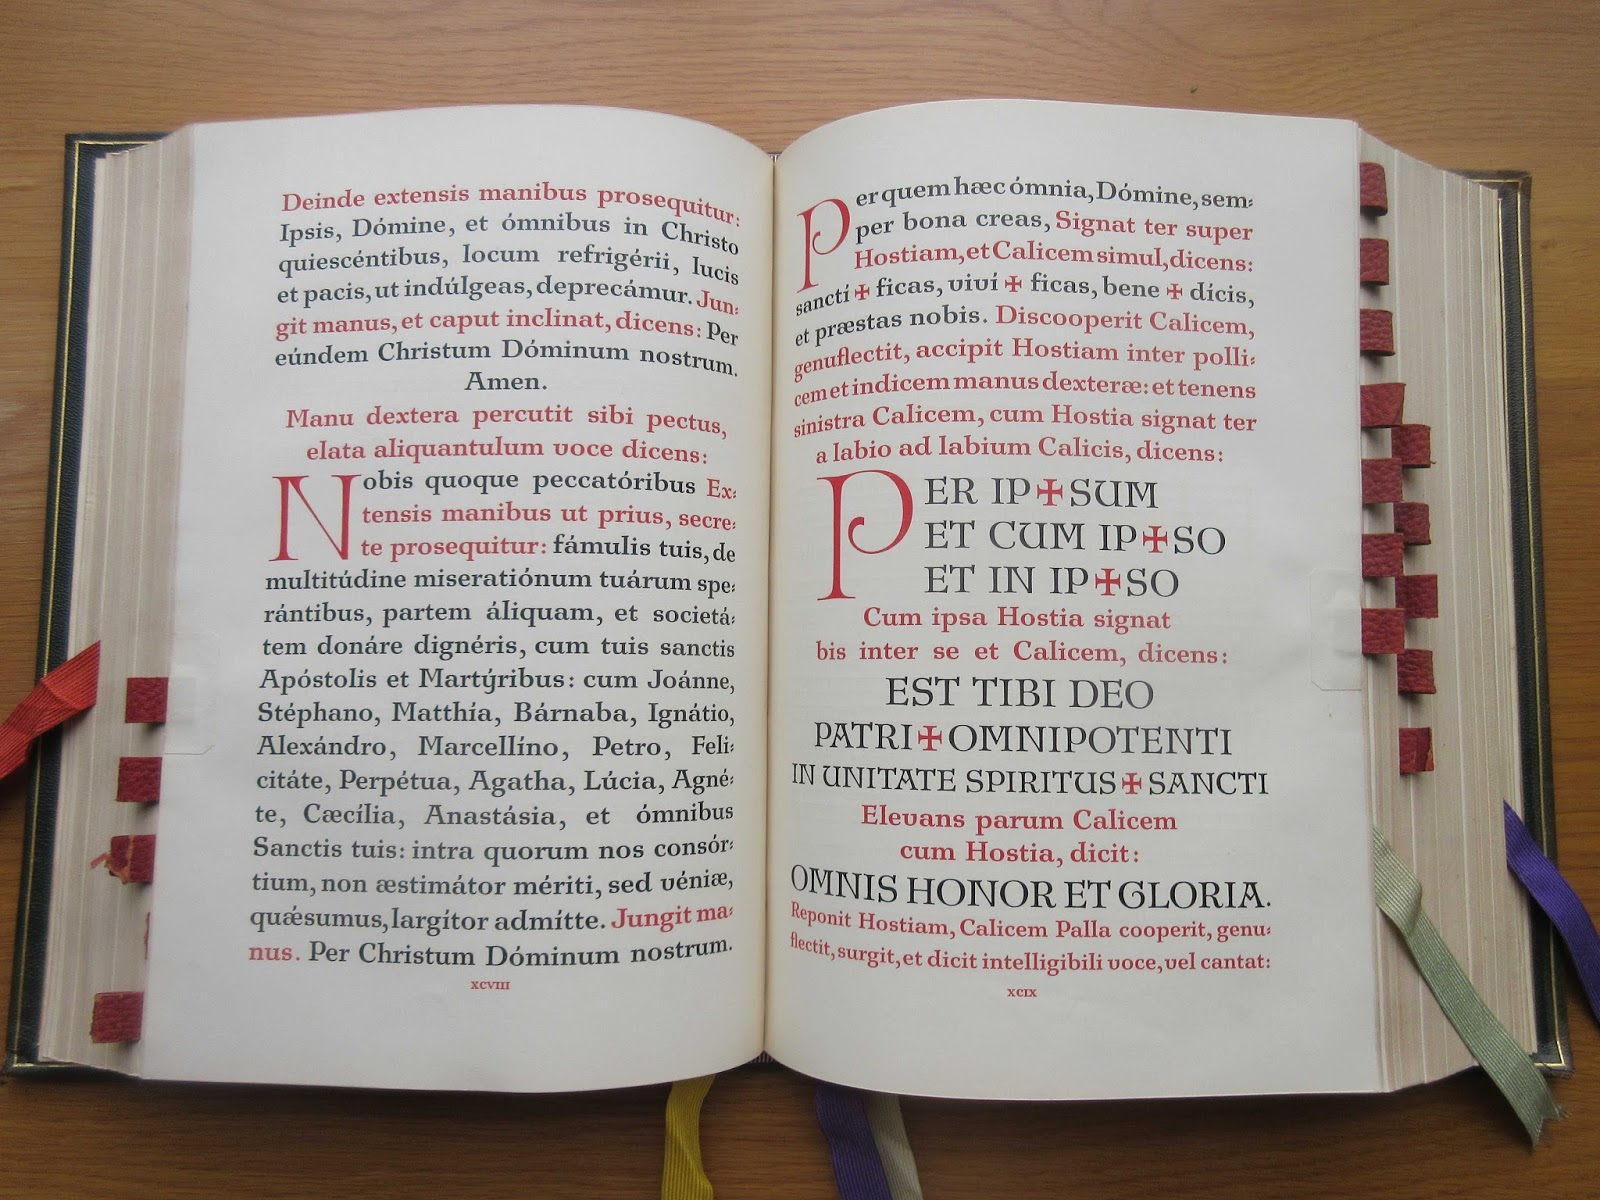 Deinde extensis manibus prosequitur:
Ipsis, Dómine, et ómnibus in Christo
quiescéntibus, locum refrigérii, lucis
et pacis, ut indúlgeas, deprecámur. Jun-
git manus, et caput inclinat, dicens: Per
eúndem Christum Dóminum nostrum.
Amen.
Manu dextera percutit sibi pectus,
elata aliquantulum voce dicens:
Nobis quoque peccatóribus Ex-
tensis manibus ut prius, secre-
te prosequitur: fámulis tuis, de
multitúdine miseratiónum tuárum spe-
rántibus, partem áliquam, et societá-
tem donáre dignéris, cum tuis sanctis
Apóstolis et Martýribus: cum Joánne,
Stéphano, Matthía, Bárnaba, Ignátio,
Alexándro, Marcellíno, Petro, Feli-
citáte, Perpétua, Agatha, Lúcia, Agné-
te, Cæcília, Anastásia, et ómnibus
Sanctis tuis: intra quorum nos consór-
tium, non æstimátor mériti, sed véniæ,
quǽsumus, largítor admítte. Jungit ma-
nus. Per Christum Dóminum nostrum.
XCVIII
Per quem hæc ómnia, Dómine, sem-
per bona creas, Signat ter super
Hostiam, et Calicem simul, dicens:
sanctí ✠ ficas, viví ✠ ficas, bene ✠ dícis,
et præstas nobis. Discooperit Calicem,
genuflectit, accipit Hostiam inter polli-
cem et indicem manus dexteræ: et tenens
sinistra Calicem, cum Hostia signat ter
a labio ad labium Calicis, dicens:
PER IP✠SUM
ET CUM IP✠SO
ET IN IP✠SO
Cum ipsa Hostia signat
bis inter se et Calicem, dicens:
EST TIBI DEO
PATRI✠OMNIPOTENTI
IN UNITATE SPIRITUS✠SANCTI
Elevans parum Calicem
cum Hostia, dicit:
OMNIS HONOR ET GLORIA.
Reponit Hostiam, Calicem Palla cooperit, genu-
flectit, surgit, et dicit intelligibili voce, vel cantat:
XCIX